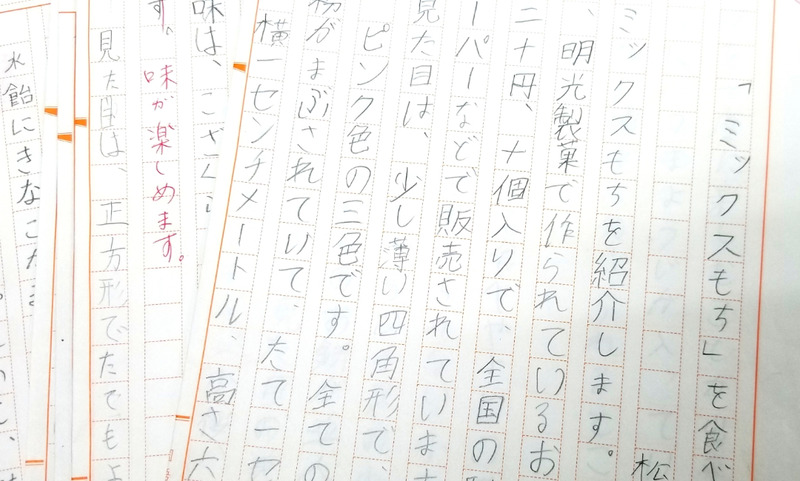 「ミックスもち」を食べ
松
ミックスもちを紹介します。
、明光製菓で作られているお
二十円、十個入りで、全国の
ーパーなどで販売されていま
見た目は、少し薄い四角形で、
ピンク色の三色です。全ての
がまぶされていて、たて一セ
横一センチメートル、高さ六
味は、
す。味が楽しめます。
見た目は、正方形でたでもよ
水飴にきなこ